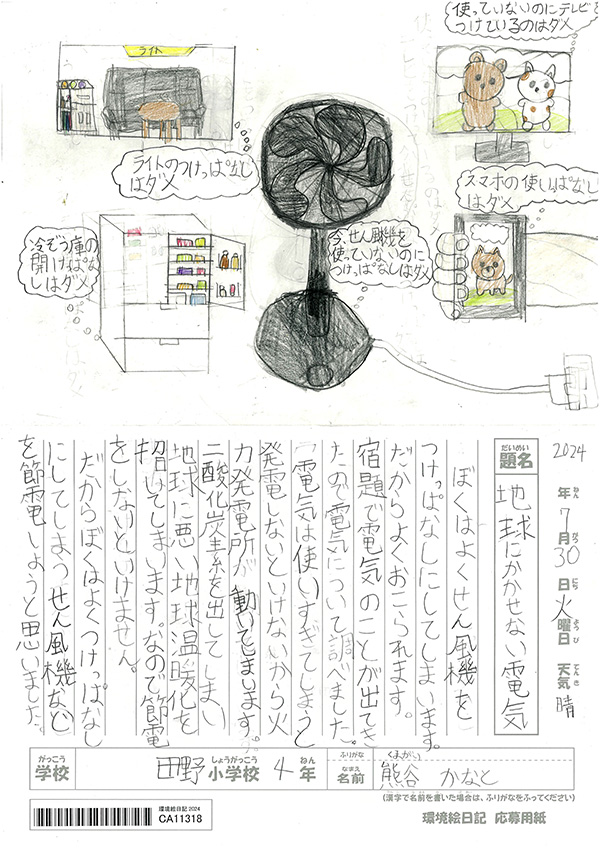 使っていないのにテレビを
つけているのはダメ
ライト
ライトのつけっぱなし
はダメ
スマホの使いっぱなし
はダメ
冷ぞう庫の
開けっぱな
しはダメ
今、せん風機を
使っていないのに
つけっぱなしはダメ
2024年7月30日火曜日 天気 晴
ねん がつ にち ようび てんき
だいめい
題名
地球にかかせない電気
ぼくはよくせん風機を
つけっぱなしにしてしまいます。
だからよくおこられます。
宿題で電気のことが出てき
たので電気について調べました。
電気は使いすぎてしまうと
発電しないといけないから火
力発電所が動いてしまいます。
二酸化炭素を出してしまい
地球に悪い地球温暖化を
招いてしまいます。なので節電
をしないといけません。
だからぼくはよくつけっぱなし
にしてしまうせん風機など
を節電しようと思いました。
がっこう
学校
田野
しょうがっこう
小学校
4
ねん
年
ふりがな
なまえ
名前
くまがい
熊谷 かなと
(漢字で名前を書いた場合は、ふりがなをふってください)
環境絵日記2024
CA11318
環境絵日記 応募用紙